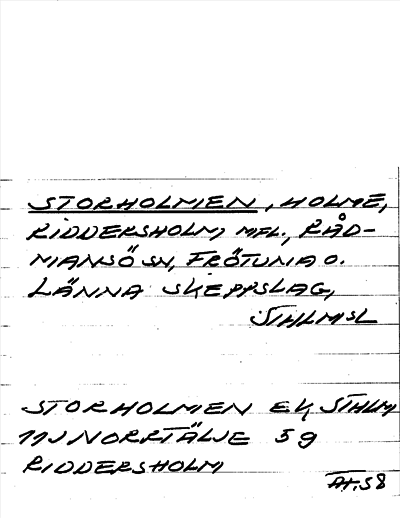 STORHOLMEN, HOLME,
RIDDERSHOLM MFL., RÅD-
MANSÖ SN, FRÖTUNA O.
LÄNNA SKEPPSLAG,
STHLMSL
STORHOLMEN EK STHLM
11J NORRTÄLJE 59
RIDDERSHOLM
AH.58